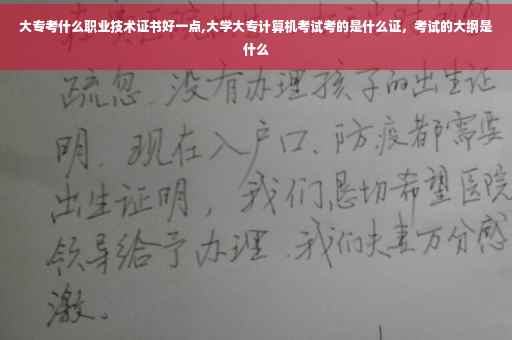 大专考什么职业技术证书好一点,大学大专计算机考试考的是什么证，考试的大纲是
什么
疏忽.没有办理孩子的出生证
明.现在入户口、防疫都需要
出生证明，我们恳切希望医院
领导给予办理.我们夫妻万分感
激。